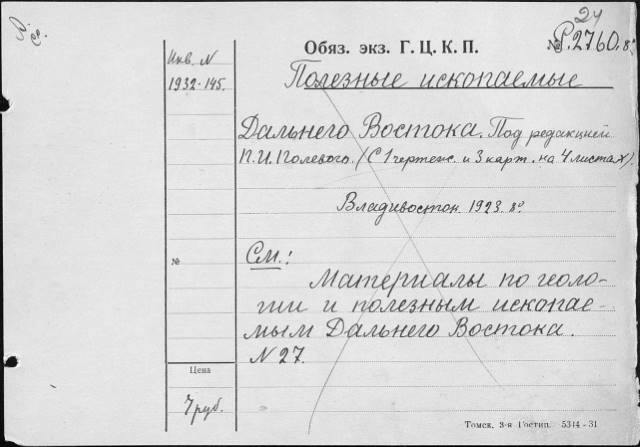 24
Р. 2760. 8º
Обяз. экз. Г. Ц. К. П.
№
Инв. N
1932-145.
Полезные ископаемые
Дальнего Востока. Под редакцией
П. И. Полевого. (С 1 чертеж. и 3 карт. на 4 листах).
Владивосток. 1923. 8º
№
См.:
Материалы по геоло-
гии и полезным ископае-
мым Дальнего Востока.
N 27.
Цена
7 руб.
Томск. 3-я Гостип. 5314 - 31